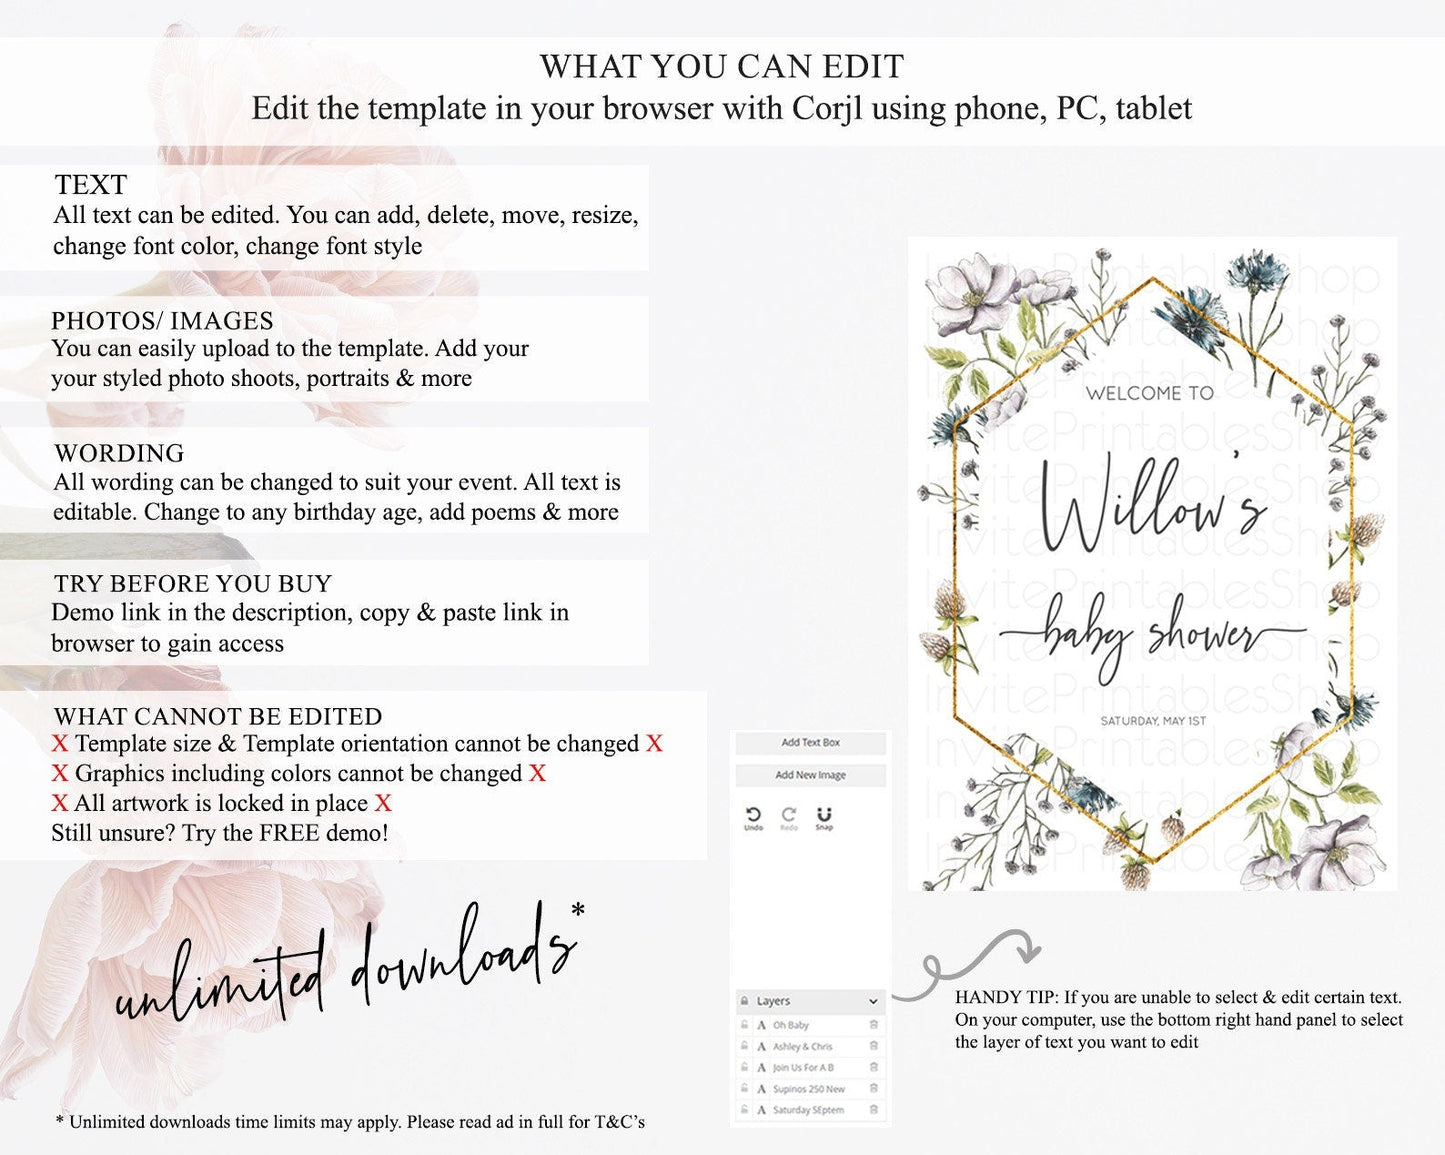 WHAT YOU CAN EDIT
Edit the template in your browser with Corjl using phone, PC, tablet
TEXT
All text can be edited. You can add, delete, move, resize,
change font color, change font style
PHOTOS/ IMAGES
You can easily upload to the template. Add your
your styled photo shoots, portraits & more
WORDING
All wording can be changed to suit your event. All text is
editable. Change to any birthday age, add poems & more
TRY BEFORE YOU BUY
Demo link in the description, copy & paste link in
browser to gain access
WHAT CANNOT BE EDITED
X Template size & Template orientation cannot be changed X
X Graphics including colors cannot be changed X
X All artwork is locked in place X
Still unsure? Try the FREE demo!
unlimited downloads*
* Unlimited downloads time limits may apply. Please read ad in full for T&C's
Add Text Box
Add New Image
Undo Redo Snap
Layers
A Oh Baby
A Ashley & Chris
A Join Us For A B
A Supinos 250 New
A Saturday SEptem
InvitePrintablesShop
WELCOME TO
Willow's
baby shower
SATURDAY, MAY 1ST
HANDY TIP: If you are unable to select & edit certain text.
On your computer, use the bottom right hand panel to select
the layer of text you want to edit